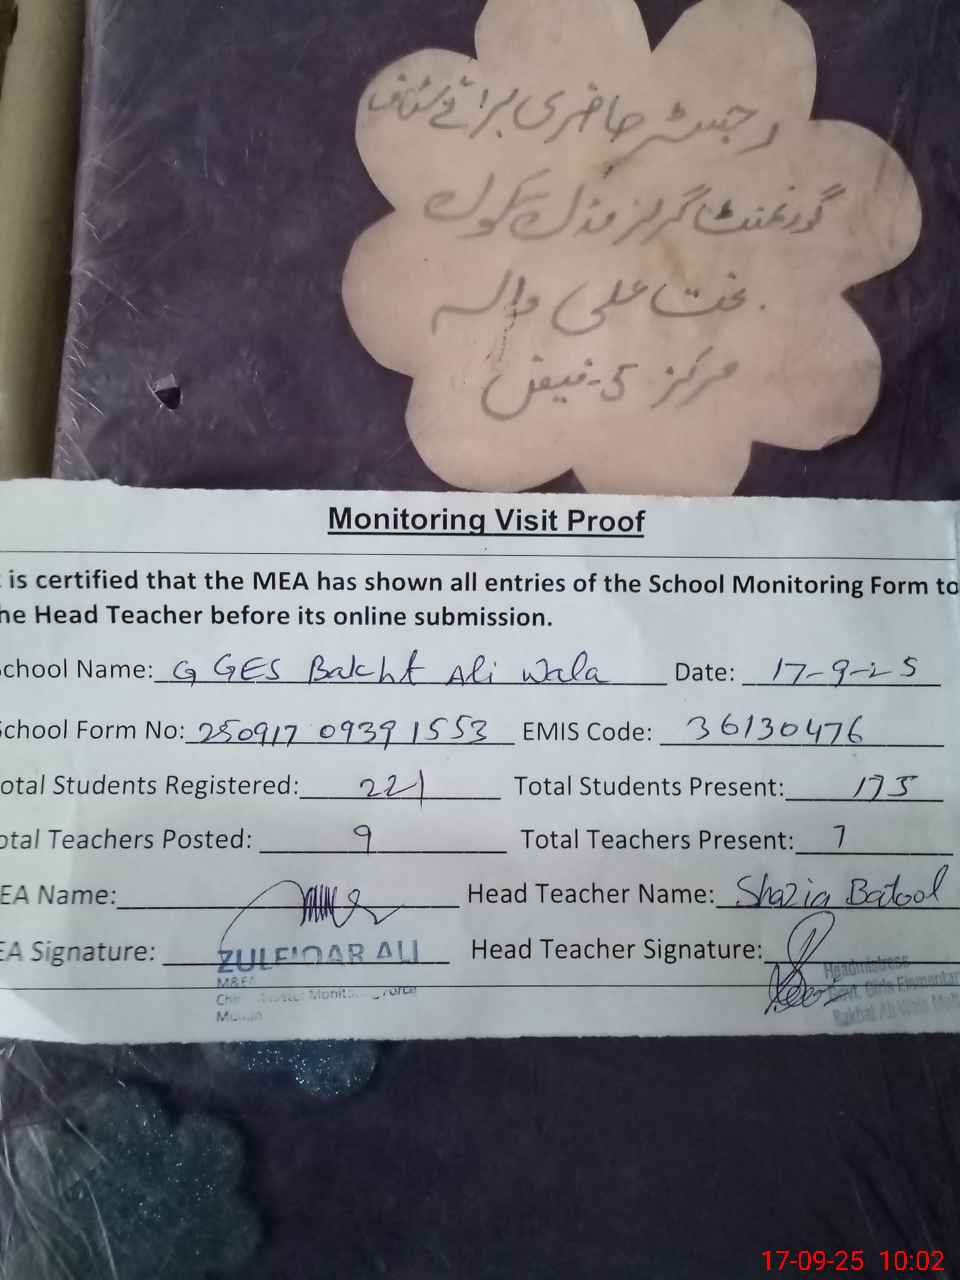 رجسٹر حاضری برائے سٹاف
گورنمنٹ گرلز مڈل سکول
بخت علی والہ
مرکز 5-فیض
Monitoring Visit Proof
is certified that the MEA has shown all entries of the School Monitoring Form to
he Head Teacher before its online submission.
chool Name: GGES Bakht Ali Wala Date: 17-9-25
chool Form No: 250917 09391553 EMIS Code: 36130476
otal Students Registered: 221 Total Students Present: 175
otal Teachers Posted: 9 Total Teachers Present: 7
EA Name: Head Teacher Name: Shazia Batool
EA Signature: Head Teacher Signature:
ZULFIQAR ALI
Headmistress
Govt. Girls Elementar
Bakhat Ali Wala
17-09-25 10:02